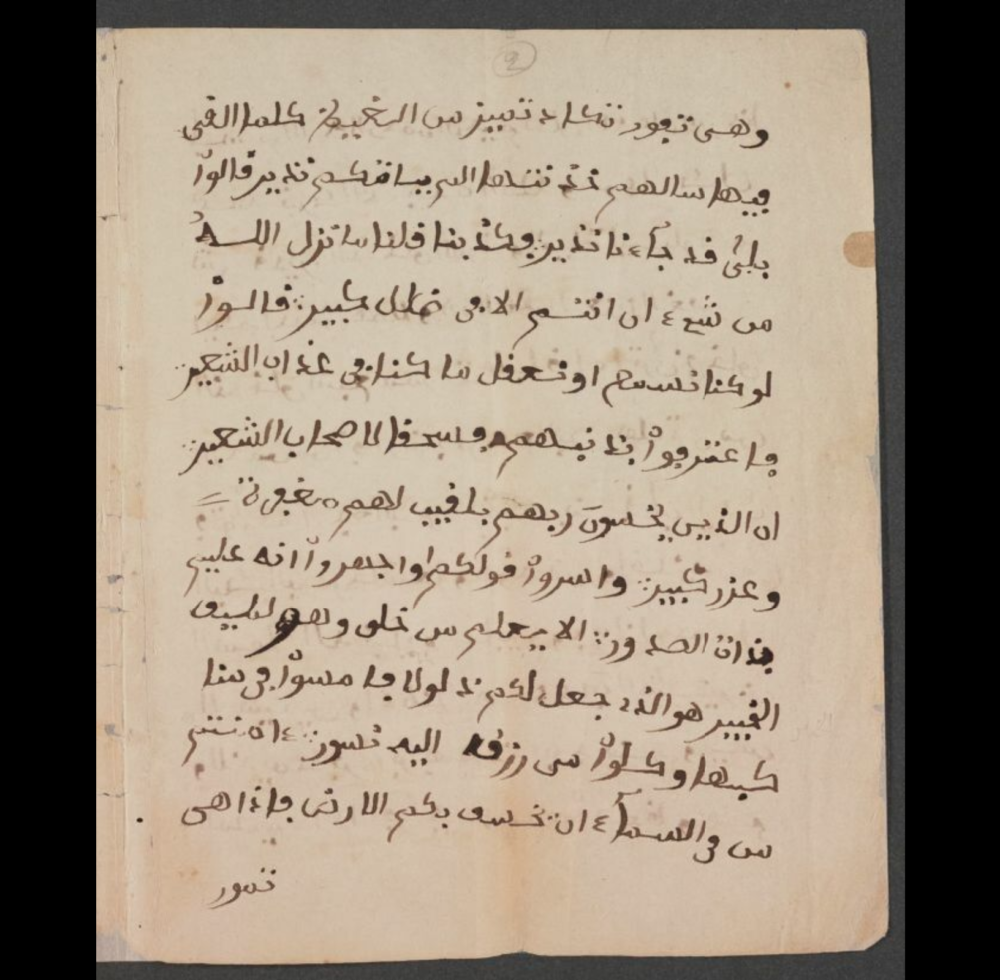 وهى تفور تكاد تميز من الغيظ كلما القى
فيها سالهم خذنتها الم يياتكم نذير قالوا
بلى قد جاءنا نذير فكذبنا قلنا ما نزل الله
من شىء ان انتم الا فى ضلل كبير قالوا
لو كنا نسمع او نعقل ما كنا فى عذاب الشعير
فاعترفوا بذنبهم فسحقا لاصحاب الشعير
ان الذين يخسون ربهم بلغيب لهم مغفرة
وعزر كبير واسروا قولكم او اجهروا انه عليم
بذات الصدور الا يعلم من خلق وهو لطيف
الخبير هو الذى جعل لكم ذلولا فامسوا فى منا
كبها وكلوا من رزقه اليه نسور
من فى السماء ان يخسف بكم الارض فاذا هى
تمور